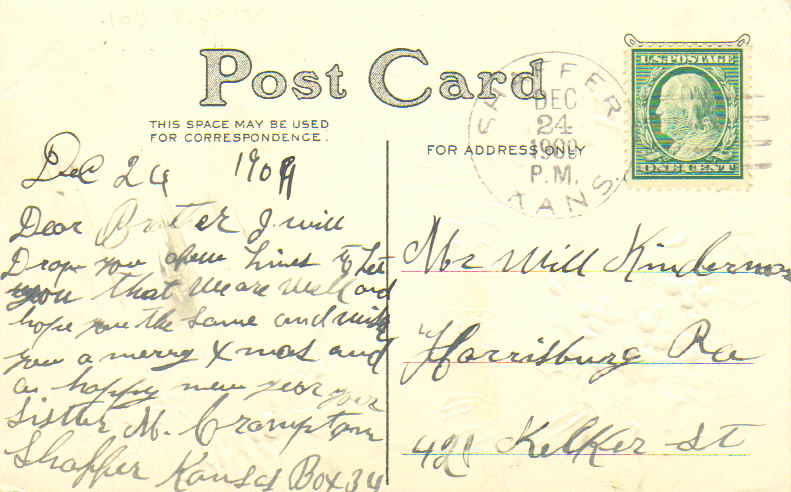 Post Card
THIS SPACE MAY BE USED
FOR CORRESPONDENCE.
FOR ADDRESS ONLY
SHAFFER
DEC
24
1909
P.M.
KANS
U.S. POSTAGE
ONE CENT
Dec 24 1909
Dear Broter I will
Drop you a few Lines to Let
you that we are well and
hope you the Same and wish
you a merry Xmas and
a happy new year your
Sister M. Crampton
Shaffer Kansas Box 34
Mr Will Kinderman
Harrisburg Pa
420 Kelker St